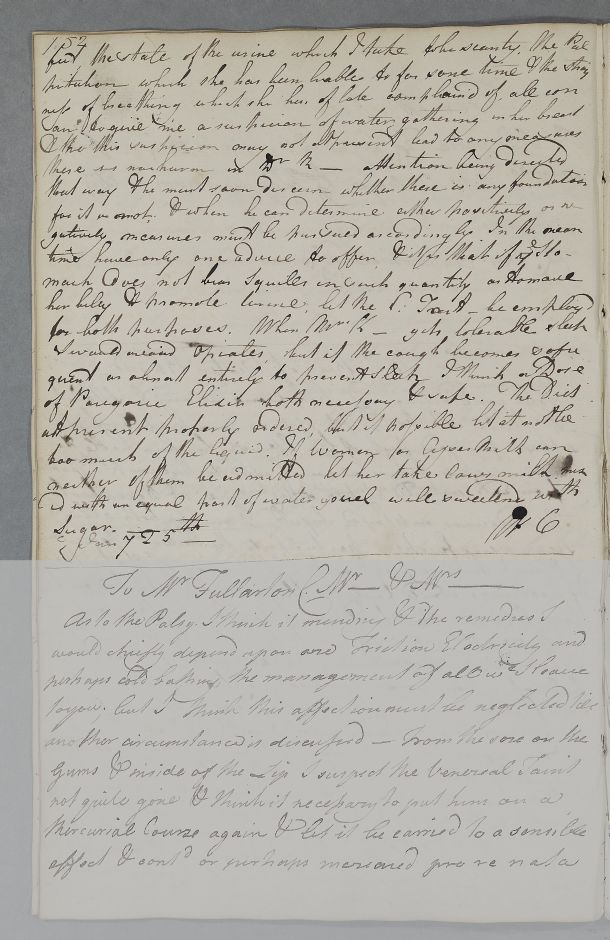 154
but the state of the urine which I take to be scanty, the Pal
pitation which she has been liable to for some time & the strait
ness of breathing which she has of late complained of all con
to give me a suspicion of water gathering in her breast
& tho this suspicion may not at present lead to any measures
there is no harm in Dr K — attention being directed
that way & he must soon discern whether there is any foundation
for it or not. & when he can determine either positively or ne
gatively measures must be pursued accordingly. In the mean
time I have only one advice to offer & it is that if the Sto-
mach does not bear Squills in such quantity as to move
her belly & to promote urine, let the C: Tart — be employd
for both purposes. When Mrs K — gets tolerable sleep
I would avoid Opiates, but if the cough becomes so fre
quent as almost entirely to prevent Sleep I think a Dose
of Paregoric Elixir both necessary & safe. The Diet
at present properly ordered, but if possible let it not be
too much of the liquid. If Women or Asses Milk can
neither of them be admitted let her take Cows milk mix
ed with an equal part of water & well sweetened with
Sugar.
7 25th
W C
To Mr Fullarton C. Mr — & Mrs —
As to the Palsy I think it mending & the remedies I
would chiefly depend upon are Friction Electricity and
perhaps cold bathing, the management of all wc I leave
to you. but I think this affection must be neglected till
another circumstance is discussed — from the sore on the
Gums & inside of the Lip I suspect the Venereal Taint
not quite gone & think it necessary to put him on a
Mercurial Course again & let it be carried to a sensible
effect & contd or perhaps increased pro re nata